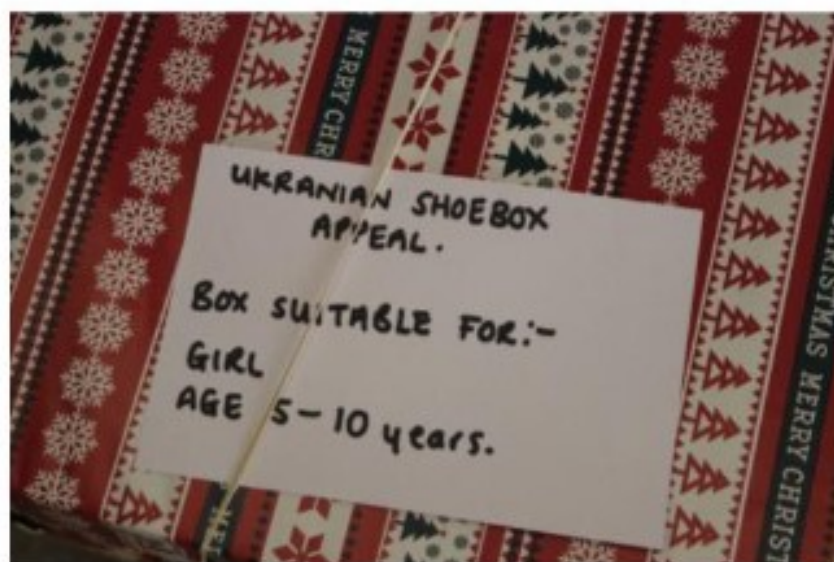 UKRANIAN SHOEBOX
APPEAL.
BOX SUITABLE FOR:-
GIRL
AGE 5-10 years.
MERRY CHR
CHRISTMAS MERRY CHRIST
MER